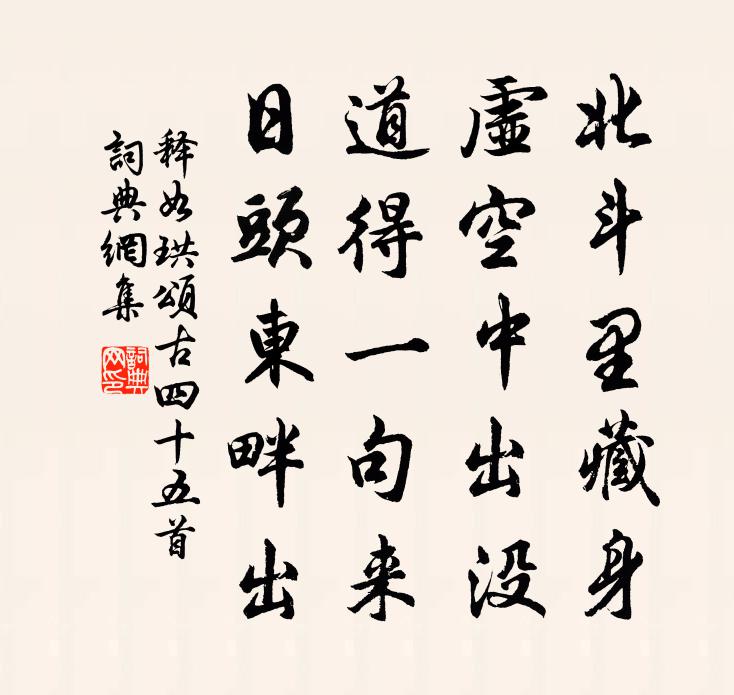 北斗里藏身
虛空中出没
道得一句来
日頭東畔出
释如珙頌古四十五首
詞典網集
詞典網印